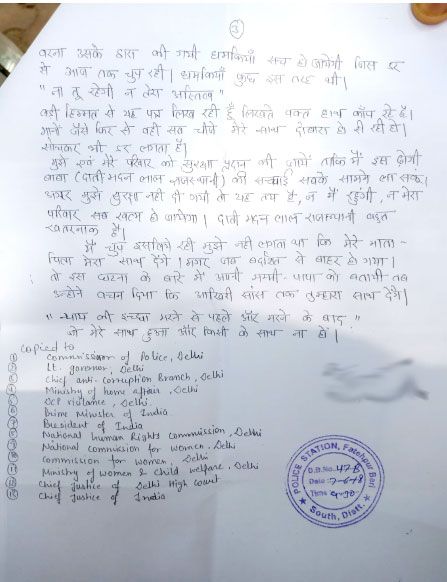 3
वरना उसके द्वारा की गयी धमकियाँ सच हो जायेगी जिस डर
से आज तक चुप रही। धमकियाँ कुछ इस तरह थी।
"ना तू रहेगी न तेरा अस्तित्व"
बड़ी हिम्मत से यह पत्र लिख रही हूँ लिखते वक्त हाथ काँप रहे हैं।
मानों जैसे फिर से वही सब चीजें मेरे साथ दोबारा हो रही हों।
सोचकर भी डर लगता है।
मुझे एवं मेरे परिवार को सुरक्षा प्रदान की जाये ताकि मैं इस ढोंगी
बाबा (दाती मदन लाल राजस्थानी) की सच्चाई सबके सामने ला सकूं।
अगर मुझे सुरक्षा नहीं दी गयी तो यह तय है, न मैं रहूंगी, न मेरा
परिवार सब खत्म हो जायेगा। दाती मदन लाल राजस्थानी बहुत
खतरनाक है।
मैं चुप इसलिये रही मुझे नहीं लगता था कि मेरे माता-
पिता मेरा साथ देंगे। मगर जब बर्दाश्त से बाहर हो गया।
तो इस घटना के बारे में अपनी मम्मी-पापा को बतायी तब
उन्होंने वचन दिया कि आखिरी सांस तक तुम्हारा साथ देंगे।
"न्याय की इच्छा मरने से पहले और मरने के बाद"
जो मेरे साथ हुआ और किसी के साथ ना हो।
Copied to
Commissioner of Police, Delhi
Lt. governor, Delhi
Chief anti-corruption Branch, Delhi
Ministry of home affair, Delhi
DCP vigilance, Delhi
Prime Minister of India
President of India
National human Rights commission, Delhi
National commission for women, Delhi
Commission for women, Delhi
Ministry of women & child welfare, Delhi
Chief Justice of Delhi High Court
Chief Justice of India
POLICE STATION, Fatehpur Beri
D.D.No. 47-B
Date 7-6-18
Time
South, Distt.